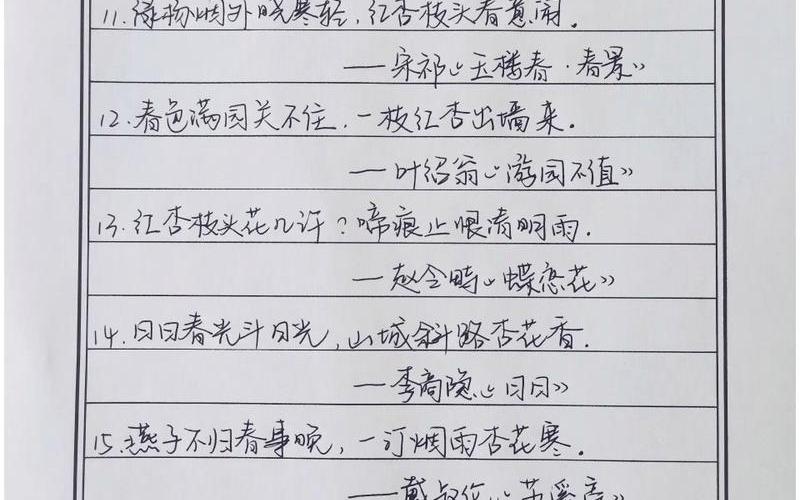 11.绿杨烟外晓寒轻，红杏枝头春意闹.
——宋祁《玉楼春·春景》
12.春色满园关不住，一枝红杏出墙来.
——叶绍翁《游园不值》
13.红杏枝头花几许？啼痕止恨清明雨.
——赵令畤《蝶恋花》
14.日日春光斗日光，山城斜路杏花香.
——李商隐《日日》
15.燕子不归春事晚，一汀烟雨杏花寒.
——戴叔伦《苏溪亭》